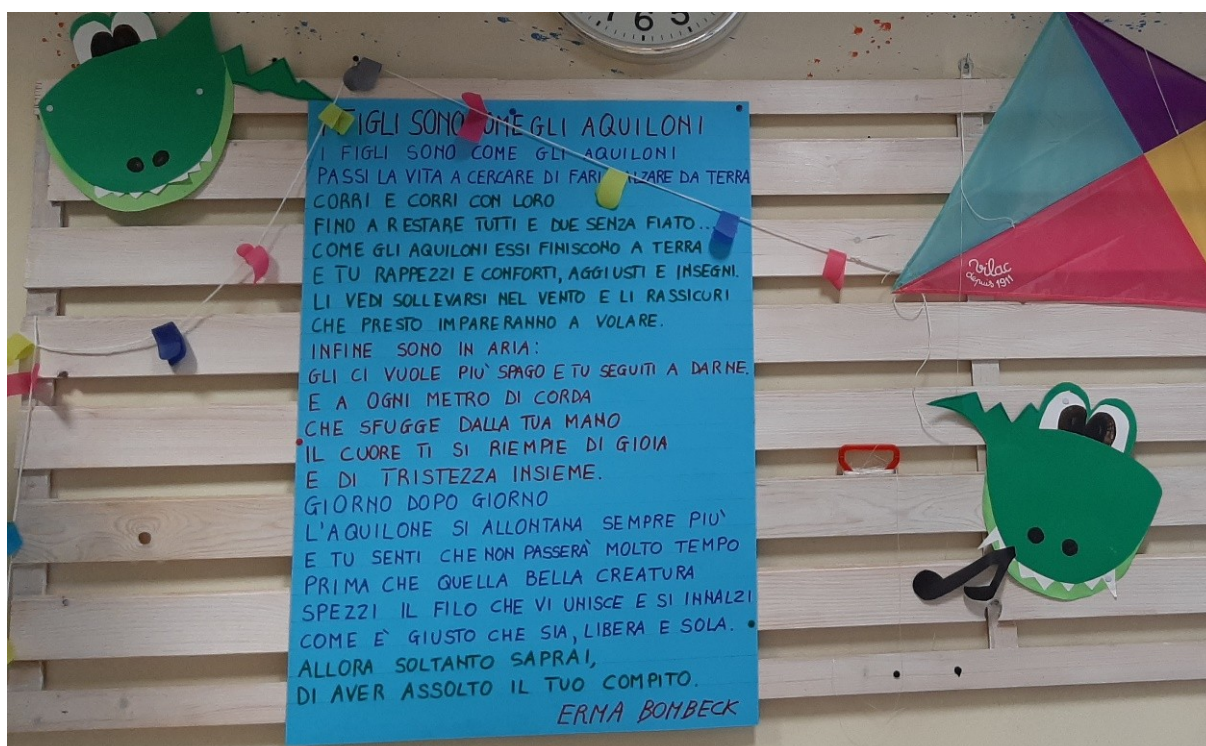 7 6 5
FIGLI SONO COME GLI AQUILONI
I FIGLI SONO COME GLI AQUILONI
PASSI LA VITA A CERCARE DI FARLI ALZARE DA TERRA
CORRI E CORRI CON LORO
FINO A RESTARE TUTTI E DUE SENZA FIATO...
COME GLI AQUILONI ESSI FINISCONO A TERRA
E TU RAPPEZZI E CONFORTI, AGGIUSTI E INSEGNI.
LI VEDI SOLLEVARSI NEL VENTO E LI RASSICURI
CHE PRESTO IMPARERANNO A VOLARE.
INFINE SONO IN ARIA:
GLI CI VUOLE PIU' SPAGO E TU SEGUITI A DARNE.
E A OGNI METRO DI CORDA
CHE SFUGGE DALLA TUA MANO
IL CUORE TI SI RIEMPIE DI GIOIA
E DI TRISTEZZA INSIEME.
GIORNO DOPO GIORNO
L'AQUILONE SI ALLONTANA SEMPRE PIU'
E TU SENTI CHE NON PASSERÀ MOLTO TEMPO
PRIMA CHE QUELLA BELLA CREATURA
SPEZZI IL FILO CHE VI UNISCE E SI INNALZI
COME È GIUSTO CHE SIA, LIBERA E SOLA.
ALLORA SOLTANTO SAPRAI,
DI AVER ASSOLTO IL TUO COMPITO.
ERMA BOMBECK
vilac
depuis 1911